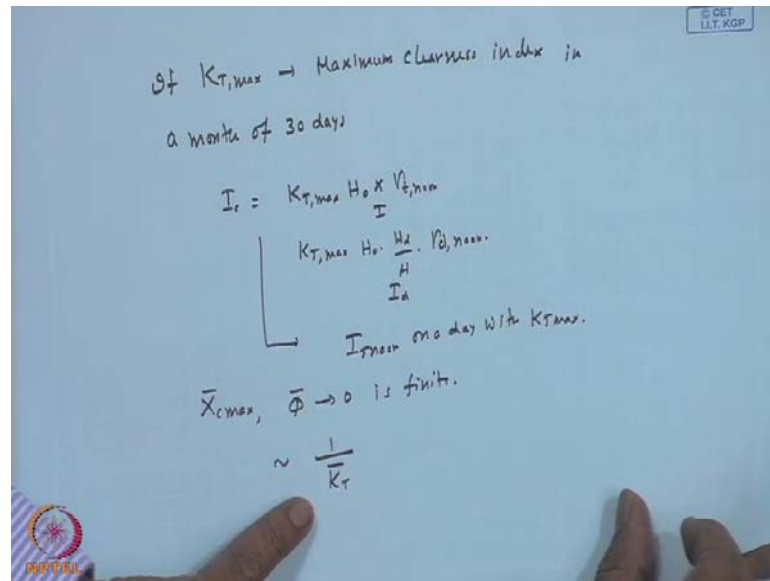 © CET
I.I.T. KGP
If K_T,max → Maximum clearness index in
a month of 30 days
I_c = K_T,max H_o × r_t,noon
I
K_T,max H_o · H_d / H · r_d,noon.
I_d
I_T noon on a day with K_T max.
X̄_c max, Φ̄ → 0 is finite.
~ 1 / K̄_T
NPTEL